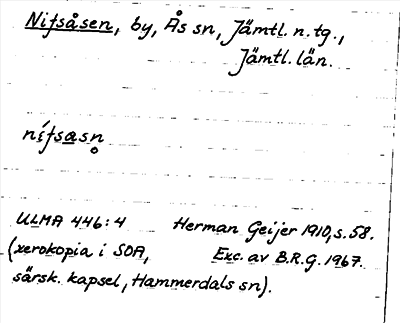 Nifsåsen, by, Ås sn, Jämtl. n. tg.,
Jämtl. län.
nífsasn̥
ULMA 446:4 Herman Geijer 1910, s. 58.
(xerokopia i SOA, Exc. av B.R.G. 1967.
särsk. kapsel, Hammerdals sn).